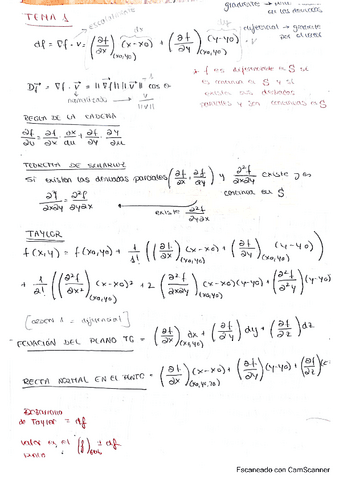 TEMA 1
escalarmente
gradiente → 
en las derivadas
diferencial → gradiente
por el vector
dx
dy
df = ∇f · v = (∂f/∂x)(x0,y0) (x-x0) + (∂f/∂y)(x0,y0) (y-y0)
* f es diferenciable en S si
es continua en S y si
existen sus derivadas
parciales y son continuas en S
Dv̄f = ∇f · v̄ = ||∇f|| ||v̄|| cos α
1
normalizado → v/||v||
REGLA DE LA CADENA
∂f/∂u = ∂f/∂x · ∂x/∂u + ∂f/∂y · ∂y/∂u
TEOREMA DE SCHWARZ
Si existen las derivadas parciales (∂f/∂x, ∂f/∂y) y ∂²f/∂x∂y existe y es
continua en S
∂²f/∂x∂y = ∂²f/∂y∂x
existe ∂²f/∂y∂x
TAYLOR
f(x,y) = f(x0,y0) + 1/1! ((∂f/∂x)(x0,y0) (x-x0) + (∂f/∂y)(x0,y0) (y-y0)
+ 1/2! ((∂²f/∂x²)(x0,y0) (x-x0)² + 2 (∂²f/∂x∂y)(x0,y0) (x-x0)(y-y0) + (∂²f/∂²y) (y-y0)
[ORDEN 1 = diferencial]
ECUACIÓN DEL PLANO TG = (∂f/∂x)(x0,y0) dx + (∂f/∂y) dy + (∂f/∂z) dz
RECTA NORMAL EN EL PUNTO = (∂f/∂x)(x0,y0,z0) (x-x0) + (∂f/∂y) (y-y0) + (∂f/∂z)
de Taylor = df
valor
± df
Escaneado con CamScanner